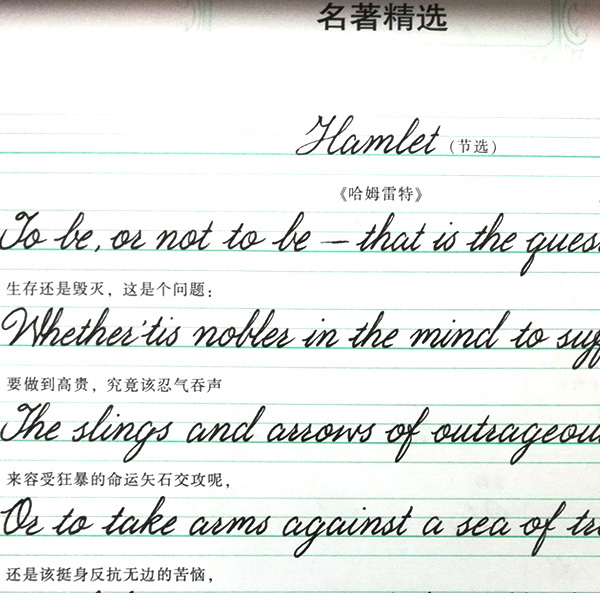 名著精选
Hamlet (节选)
《哈姆雷特》
To be, or not to be – that is the
生存还是毁灭，这是个问题：
Whether 'tis nobler in the mind to
要做到高贵，究竟该忍气吞声
The slings and arrows of
来容受狂暴的命运矢石交攻呢，
Or to take arms against a sea of
还是该挺身反抗无边的苦恼，